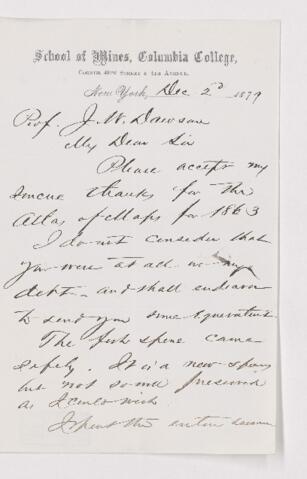 School of Mines, Columbia College,
Corner 49th Street & 4th Avenue.
New York, Dec 2d 1879
Prof. J. W. Dawson
My Dear Sir
Please accept my
sincere thanks for the
Atlas of Maps for 1863
I do not consider that
you were at all in my
debt and shall endeavor
to send you some equivalent
The fish spine came
safely. It is a new species
but not so well preserved
as I could wish
I spent the entire